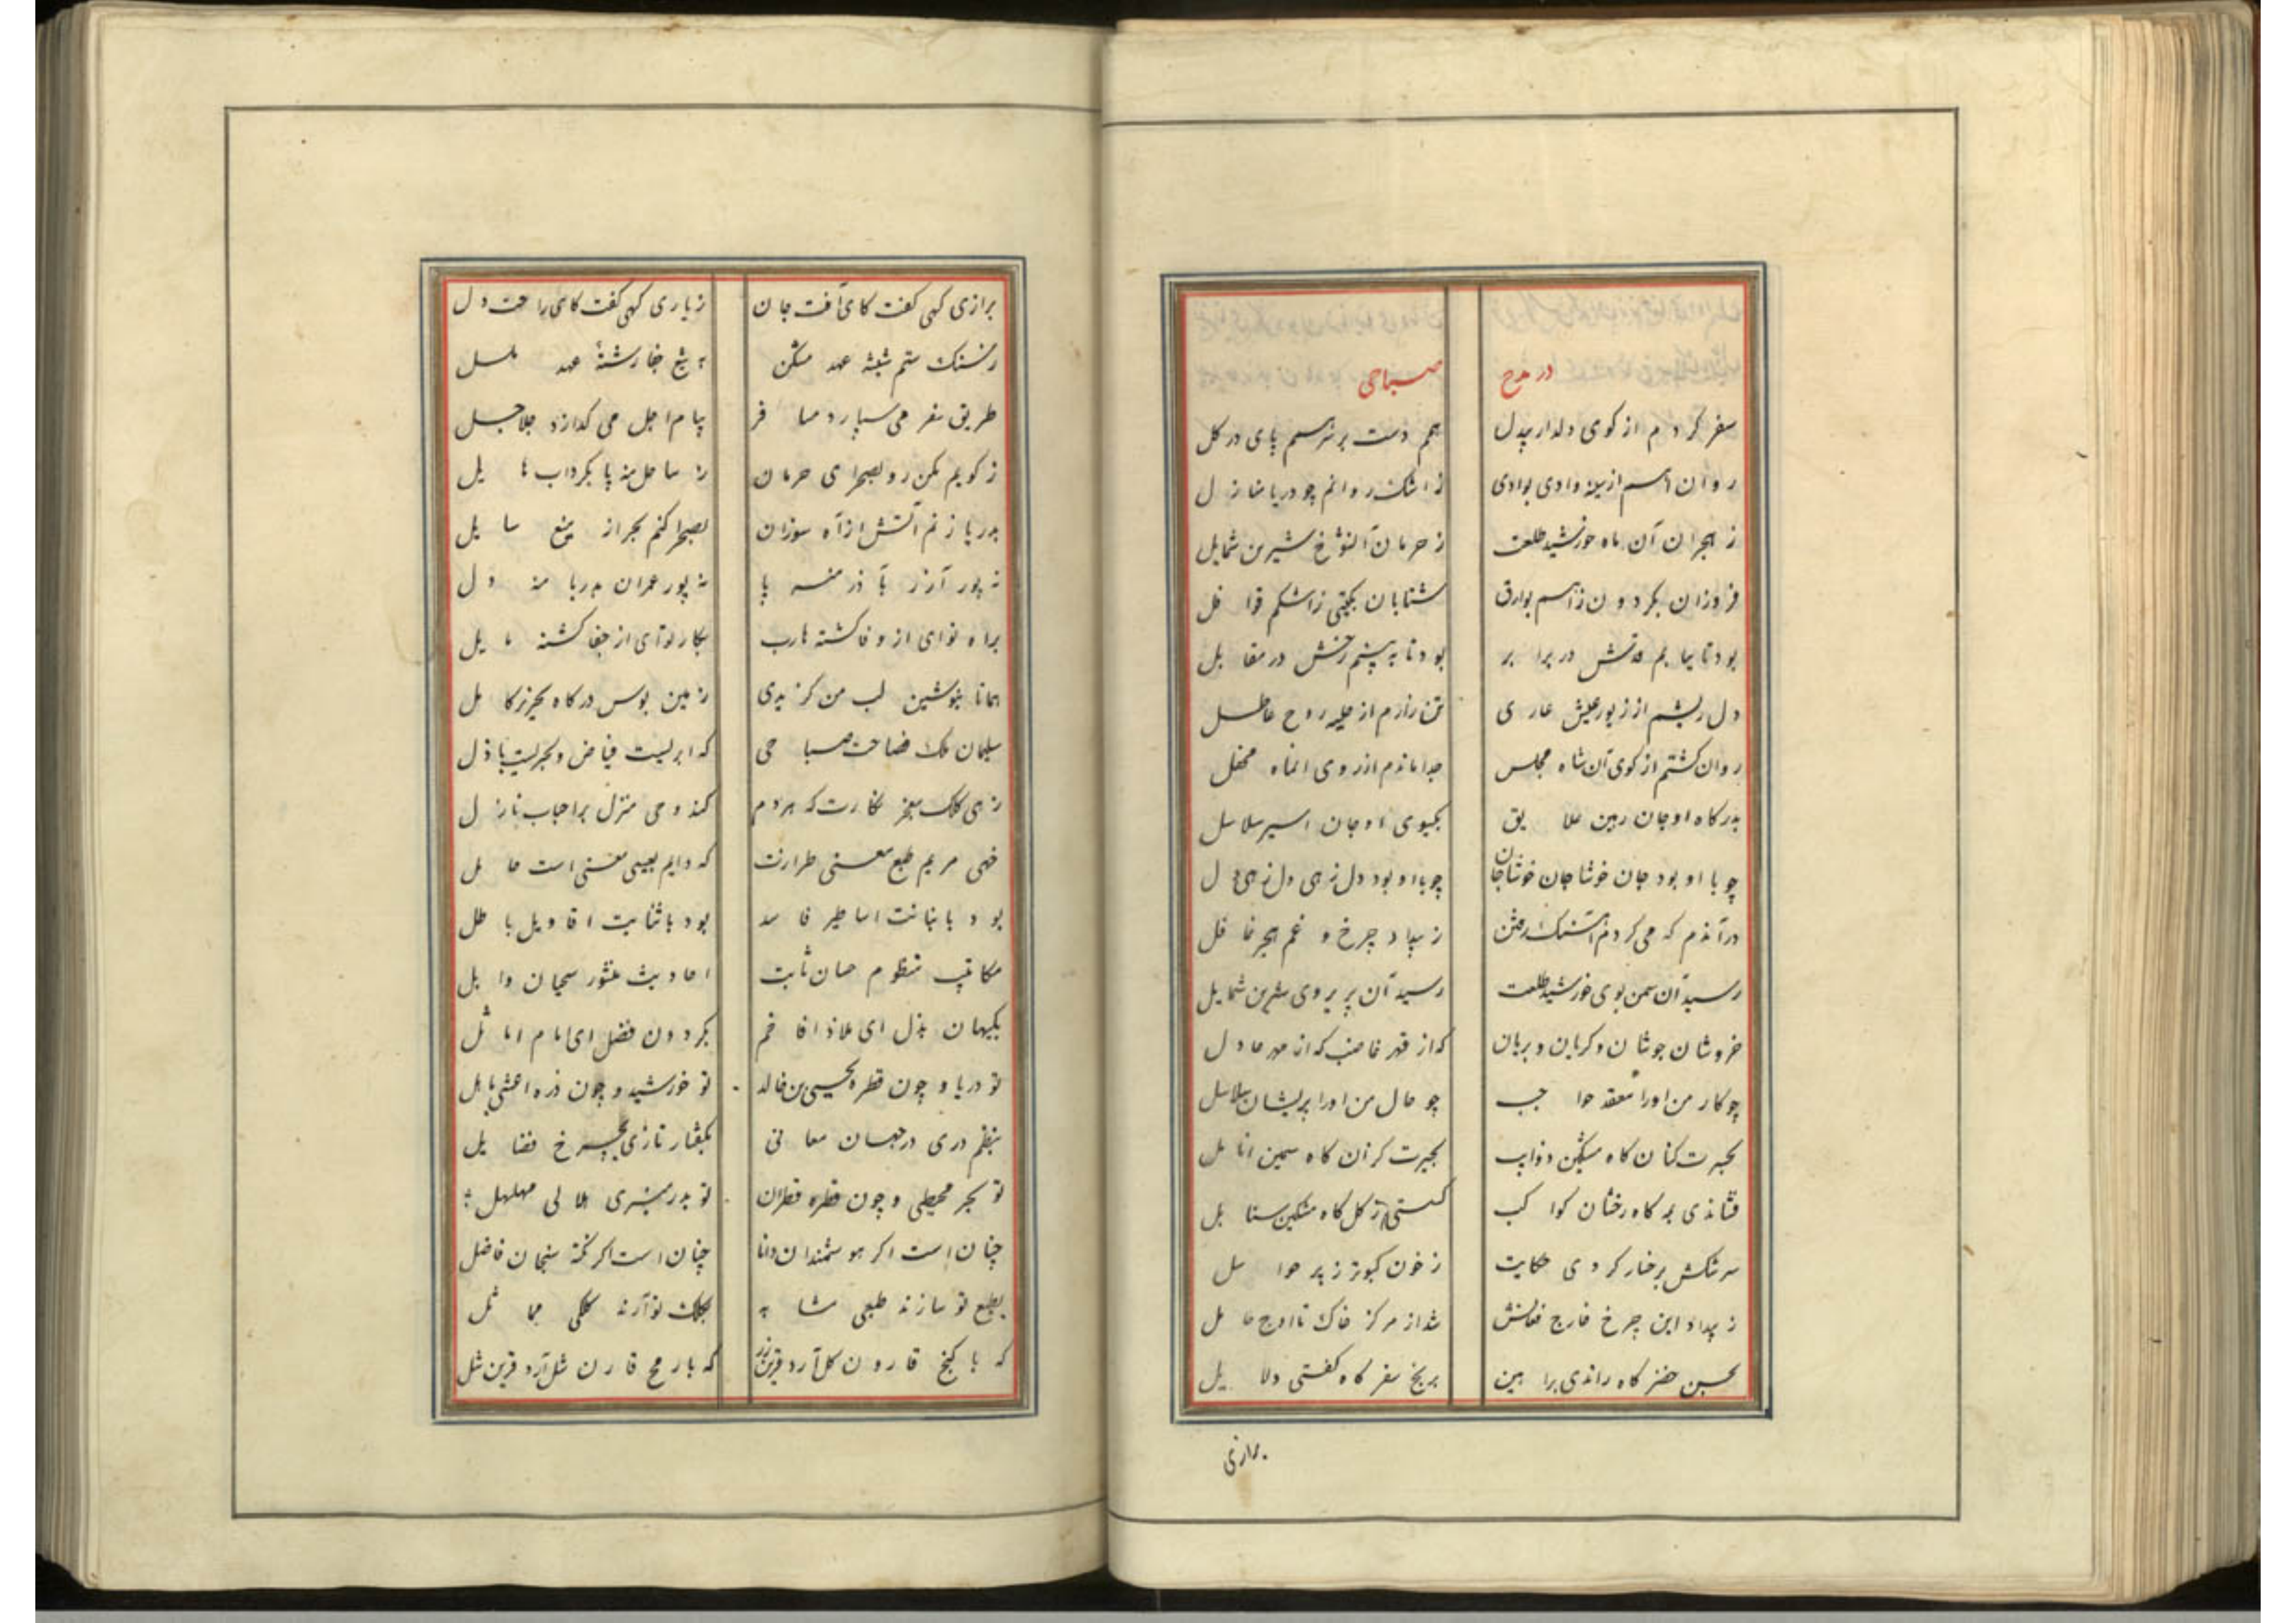 در مدح صباحی
سفر کردم از کوی دلدار بیدل همم دست بر سر همم پای در کل
روان آهم از سینه وادی بوادی ز اشک روانم چو دریا منازل
ز هجران آن ماه خورشید طلعت ز حرمان آن شوخ شیرین شمایل
فروزان بکردون ز آهم بوارق شتابان بکیتی ز اشکم قوافل
بود تا بیابم قدش در برابر بود تا ببینم رخش در مقابل
دل ریشم از زیور عیش عاری تن زارم از حلیه روح عاطل
روان کشتم از کوی آن شاه مجلس جدا ماندم از روی انماه محفل
بدرکاه او جان رهین علایق بکیسوی او جان اسیر سلاسل
چو با او بود جان خوشا جان خوشا جان چو با او بود دل زهی دل زهی دل
در آندم که می کردم آهنک رفتن ز بیداد چرخ و غم هجر غافل
رسید آن سمن بوی خورشید طلعت رسید آن پریروی شیرین شمایل
خروشان جوشان و کریان و بریان که از قهر غاضب که از مهر عادل
چو کار من او را معقد حواجب چو حال من او را پریشان سلاسل
بحیرت کنان کاه مشکین ذوایب بحیرت کزان کاه سیمین انامل
فشاندی بمه کاه رخشان کواکب کسستی ز کل کاه مشکین سنابل
سرشکش برخسار کردی حکایت ز خون کبوتر ز پر حواسل
ز بیداد این چرخ فارج فغانش شد از مرکز خاک تا اوج حامل
بحسن حضر کاه راندی براهین برنج سفر کاه کفتی دلایل
برازی
برازی کهی کفت کای آفت جان زیاری کهی کفت کای راحت دل
ز سنک ستم شیشه عهد مشکن به تیغ جفا رشتهٔ عهد مکسل
طریق سفر می سپارد مسافر پیام اجل می کذارد جلاجل
ز کویم مکن رو بصحرای حرمان ز ساحل منه پا بکرداب هایل
بدریا زنم آتش از آه سوزان بصحرا کنم بحر از منع سایل
نه پور آزر بآذر منه پا نه پور عمران بدریا منه دل
براه نوای از وفا کشته هارب بکار نوای از جفا کشته مایل
همانا بنوشین لب من کزیدی زمین بوس درکاه نحریر کامل
سلیمان ملک فصاحت صباحی که ابریست فیاض و بحریست باذل
زهی کلک معجز نکارت که هر دم کند وحی منزل بر احباب نازل
خهی مریم طبع معنی طرازت که دایم بعیسی معنی است حامل
بود با بنانت اساطیر فاسد بود با ثنایت اقاویل باطل
مکاتیب منظوم حسان ثابت احادیث منثور سحبان وایل
بکیهان بذل ای ملاذ افاخم بکردون فضل ای امام اماثل
تو دریا و چون قطره یحیی بن خالد تو خورشید و چون ذره اعشی باهل
بنظم دری در جهان معانی بکفتار تازی بچرخ فضایل
تو بحر محیطی و چون قطره قطران تو بدر منیری هلالی مهلهل
چنان است اکر هوشمندان دانا چنان است اکر نکته سنجان فاضل
بطبع تو سازند طبعی مشابه بکلک تو آرند کلکی مماثل
که با کنج قارون کل آرد قرین زر که با رمح قارن شل آرد قرین شل